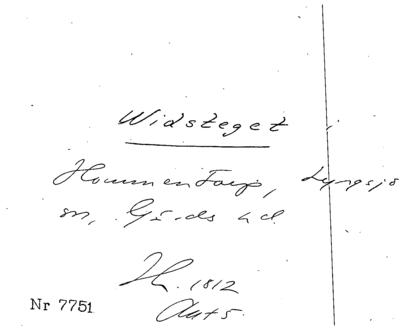 Widsteget i
Hommentorp, Lyngsjö
sn, Gärds hd
H. 1812
Nr 7751